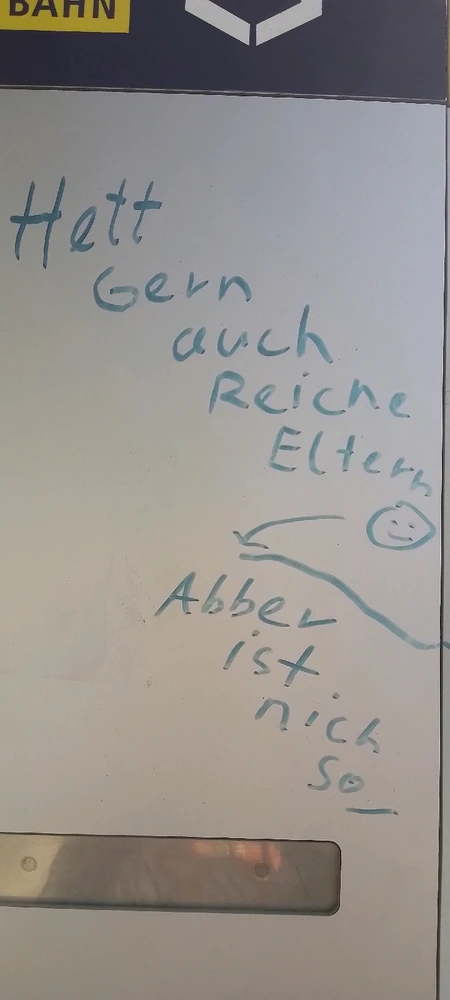 BAHN
Hett
Gern
auch
Reiche
Eltern
Abber
ist
nich
so